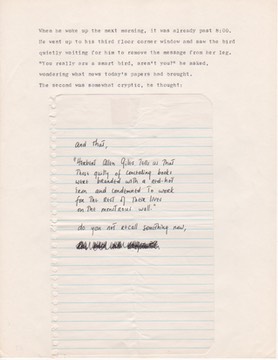 When he woke up the next morning, it was already past 8:00.
He went up to his third floor corner window and saw the bird
quietly waiting for him to remove the message from her leg.
"You really are a smart bird, aren't you?" he asked,
wondering what news today's papers had brought.
The second was somewhat cryptic, he thought:
and that,
"Herbert Allen Giles tells us that
Those guilty of concealing books
were branded with a red-hot
iron and condemned to work
for the rest of their lives
on the monstrous wall."
do you not recall something new,